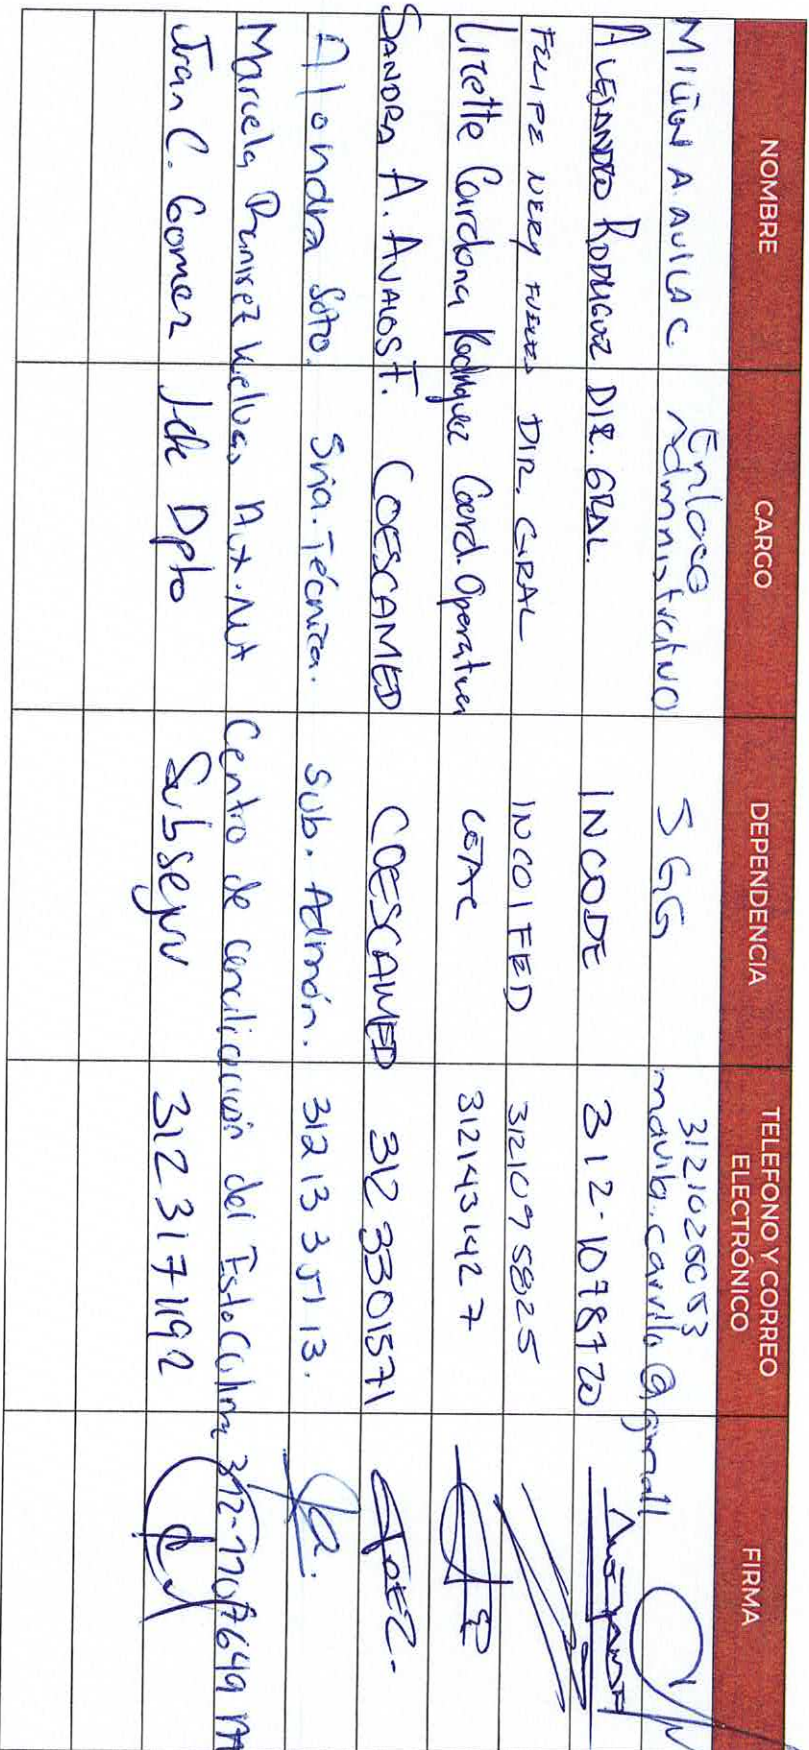 NOMBRE CARGO DEPENDENCIA TELEFONO Y CORREO ELECTRÓNICO FIRMA
A. AVILA C Enlace Administrativo SGG @gmail
ALEJANDRO RODRIGUEZ DIR. GRAL. INCODE 312-1078720
FELIPE NERY DIR. GRAL INCOIFED 3121095825
Lizette Cardona Rodriguez Coord. Operativa 3121431427
SANDRA A. AVALOS F. COESCAMED COESCAMED 312 3301571
Alondra Soto. Sria. Técnica. Sub. Admón. 312 13 3 51 13.
Marcela Ramirez Aux. Centro de conciliación del Colima
Juan C. Gomez Jefe Dpto 312 317 1192